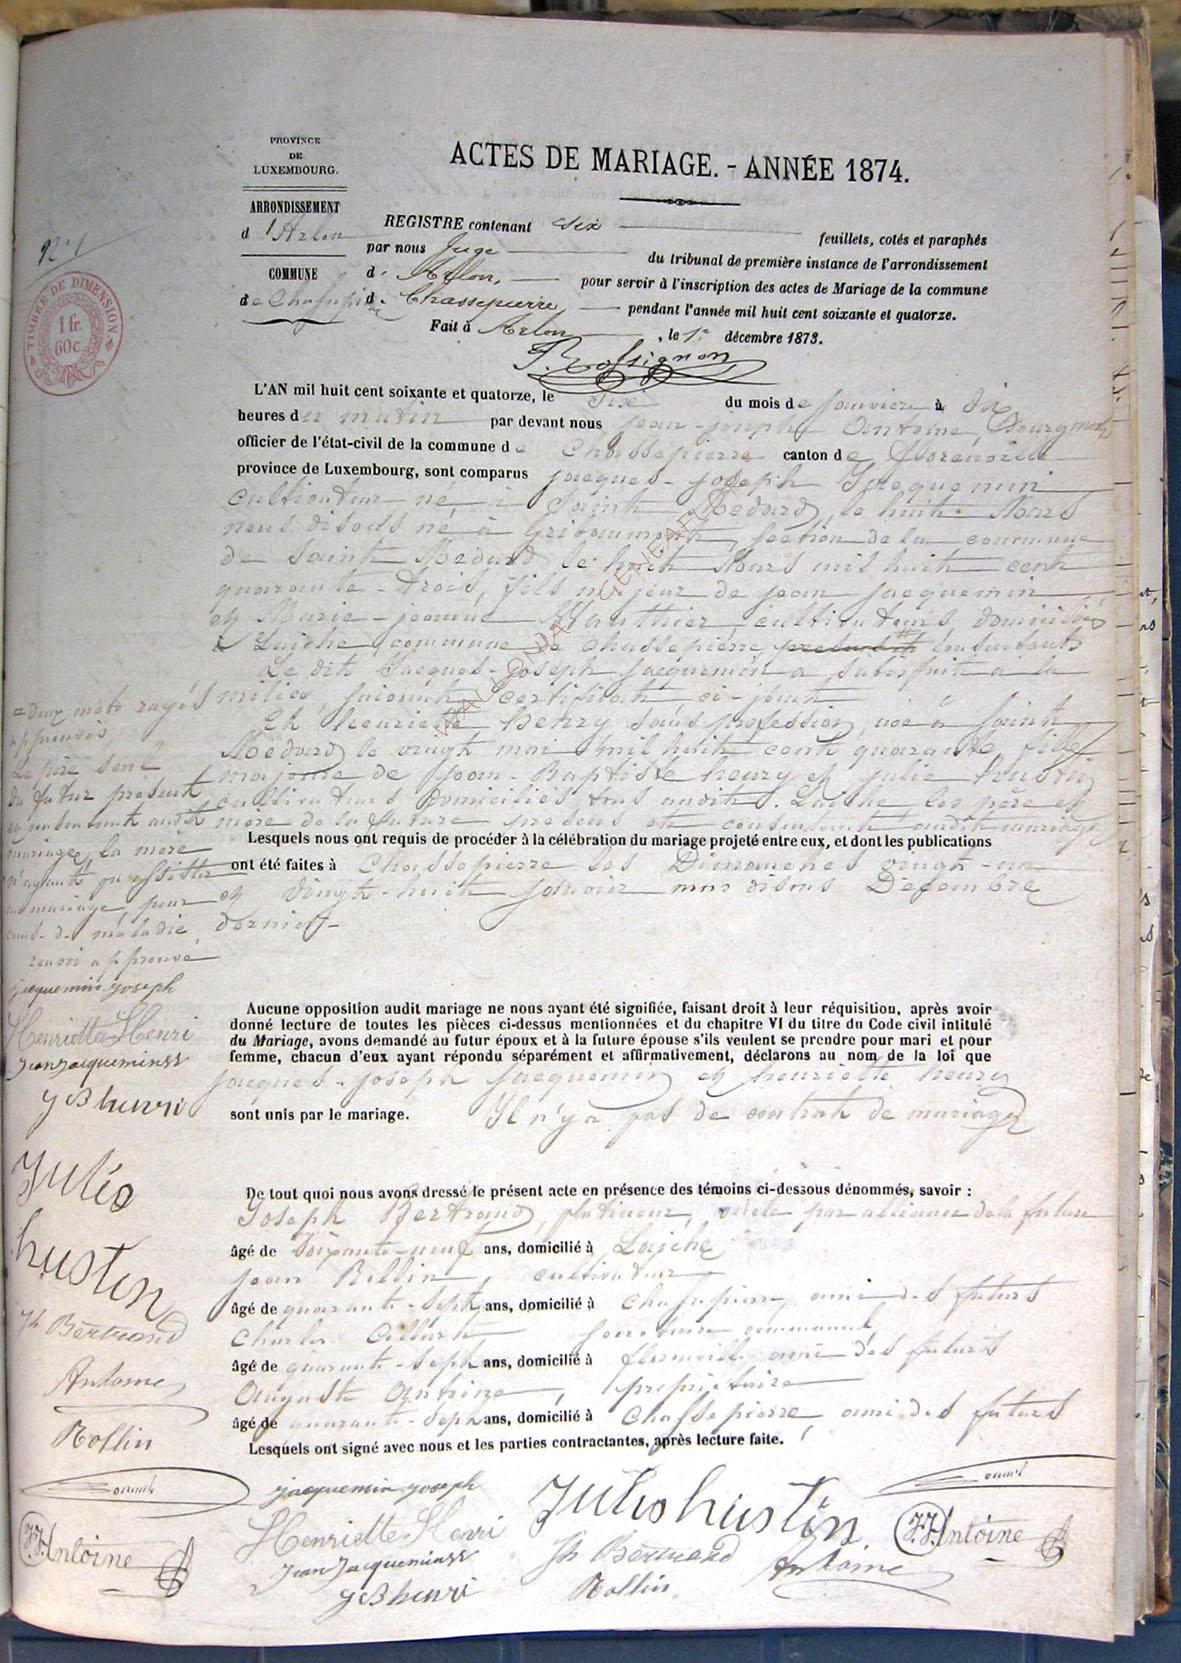 PROVINCE
DE
LUXEMBOURG.
ARRONDISSEMENT
d'Arlon
COMMUNE
de Chassepierre
N° 1
TIMBRE DE DIMENSION
1 fr.
60 c.
ACTES DE MARIAGE. - ANNÉE 1874.
REGISTRE contenant six feuillets, cotés et paraphés
par nous Juge du tribunal de première instance de l'arrondissement
d'Arlon, pour servir à l'inscription des actes de Mariage de la commune
de Chassepierre pendant l'année mil huit cent soixante et quatorze.
Fait à Arlon, le 1er décembre 1873.
Rossignon
L'AN mil huit cent soixante et quatorze, le six du mois de janvier à dix
heures du matin par devant nous jean-joseph Antoine, Bourgmestre
officier de l'état-civil de la commune de Chassepierre canton de florenville
province de Luxembourg, sont comparus jacques-joseph Jacquemin
cultivateur né à Saint Médard, le huit Mars
nous disons né à Gribaumont, section de la commune
de Saint Médard le huit Mars mil huit cent
quarante-trois, fils majeur de jean jacquemin
et Marie-jeanne Gauthier cultivateurs, domiciliés
à Laiche, commune de Chassepierre, consentants
Le dit Jacques-joseph jacquemin a satisfait à la
milice suivant certificat ci-joint
Et henriette henry sans profession, née à Saint
Médard le vingt mai mil huit cent quarante, fille
majeure de jean-Baptiste henry et julie hustin
cultivateurs domiciliés tous audit Laiche les père et
mère de la future présens et consentant audit mariage
Lesquels nous ont requis de procéder à la célébration du mariage projeté entre eux, et dont les publications
ont été faites à Chassepierre les Dimanches vingt-un
et vingt-huit janvier mois disons Décembre
dernier-
= deux mots rayés
approuvés,
Le père seul
du futur présent
et consentant audit
mariage, la mère
n'ayant pu assister
au mariage pour
cause de maladie
renvoi approuvé
jacquemin joseph
Henriette Henri
Jean Jacquemin
J B henri
Julie
hustin
Jh Bertrand
Antoine
Rollin
J.J. Antoine
Aucune opposition audit mariage ne nous ayant été signifiée, faisant droit à leur réquisition, après avoir
donné lecture de toutes les pièces ci-dessus mentionnées et du chapitre VI du titre du Code civil intitulé
du Mariage, avons demandé au futur époux et à la future épouse s'ils veulent se prendre pour mari et pour
femme, chacun d'eux ayant répondu séparément et affirmativement, déclarons au nom de la loi que
jacques-joseph jacquemin et henriette henry
sont unis par le mariage. Il n'y a pas de contrat de mariage
De tout quoi nous avons dressé le présent acte en présence des témoins ci-dessous dénommés, savoir :
Joseph Bertrand, oncle par alliance de la future
âgé de soixante-neuf ans, domicilié à Laiche
jean Rollin, cultivateur
âgé de quarante-sept ans, domicilié à Chassepierre, ami des futurs
Charles secrétaire communal
âgé de quarante-sept ans, domicilié à florenville ami des futurs
Auguste Antoine, propriétaire
âgé de quarante-sept ans, domicilié à Chassepierre ami des futurs
Lesquels ont signé avec nous et les parties contractantes, après lecture faite.
jacquemin joseph
Henriette Henri
Jean Jacquemin
J B henri
Julie hustin
Jh Bertrand
Rollin
Antoine
J.J. Antoine